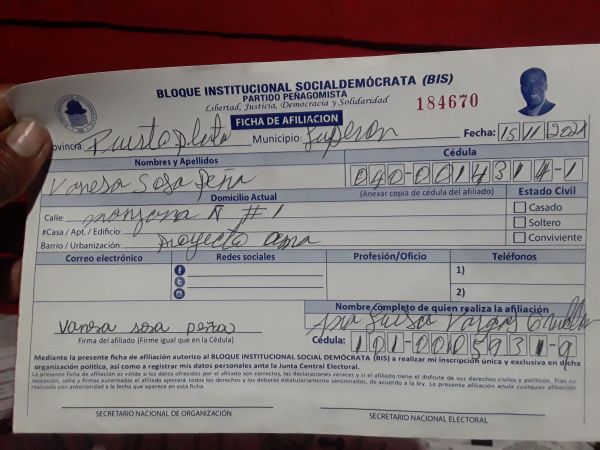 BLOQUE INSTITUCIONAL SOCIALDEMÓCRATA (BIS)
PARTIDO PEÑAGOMISTA
Libertad, Justicia, Democracia y Solidaridad
184670
FICHA DE AFILIACION
Provincia: Puerto plata Municipio: Luperon Fecha: 15/11/2021
Nombres y Apellidos Cédula
Vanesa Sosa Peña 040-0014311-1
Domicilio Actual (Anexar copia de cédula del afiliado) Estado Civil
Calle: manzana N #1 Casado
#Casa / Apt. / Edificio: Soltero
Barrio / Urbanización: proyecto Conviviente
Correo electrónico Redes sociales Profesión/Oficio Teléfonos
1)
2)
Nombre completo de quien realiza la afiliación
vanesa sosa peña Ana Luisa Vargas
Firma del afiliado (Firme igual que en la Cédula) Cédula: 101-0005931-9
Mediante la presente ficha de afiliación autorizo al BLOQUE INSTITUCIONAL SOCIAL DEMÓCRATA (BIS) a realizar mi inscripción única y exclusiva en dicha
organización política, así como a registrar mis datos personales ante la Junta Central Electoral.
La presente ficha de afiliación es válida si los datos ofrecidos por el afiliado son correctos, las declaraciones veraces y si el afiliado tiene el disfrute de sus derechos civiles y políticos. Tras su
recepción, sello y firmas autorizadas el afiliado ejercerá todos los derechos y los deberes estatutariamente sancionados, de acuerdo a la ley. La presente afiliación anula cualquier afiliación
realizada con anterioridad a la fecha que aparece en esta ficha.
SECRETARIO NACIONAL DE ORGANIZACIÓN SECRETARIO NACIONAL ELECTORAL